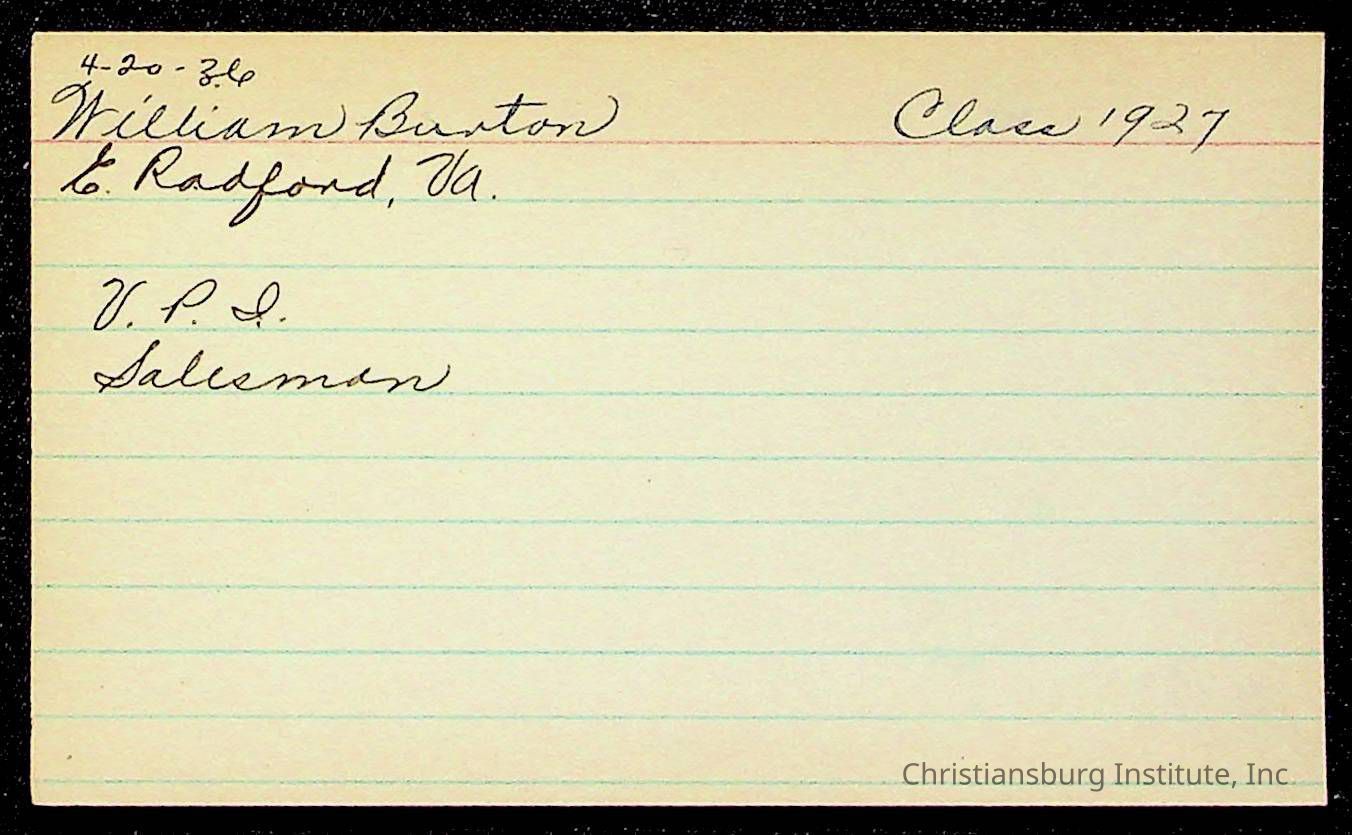 4-20-36
William Burton Class 1927
E. Radford, Va.
V. P. I.
Salesman
Christiansburg Institute, Inc